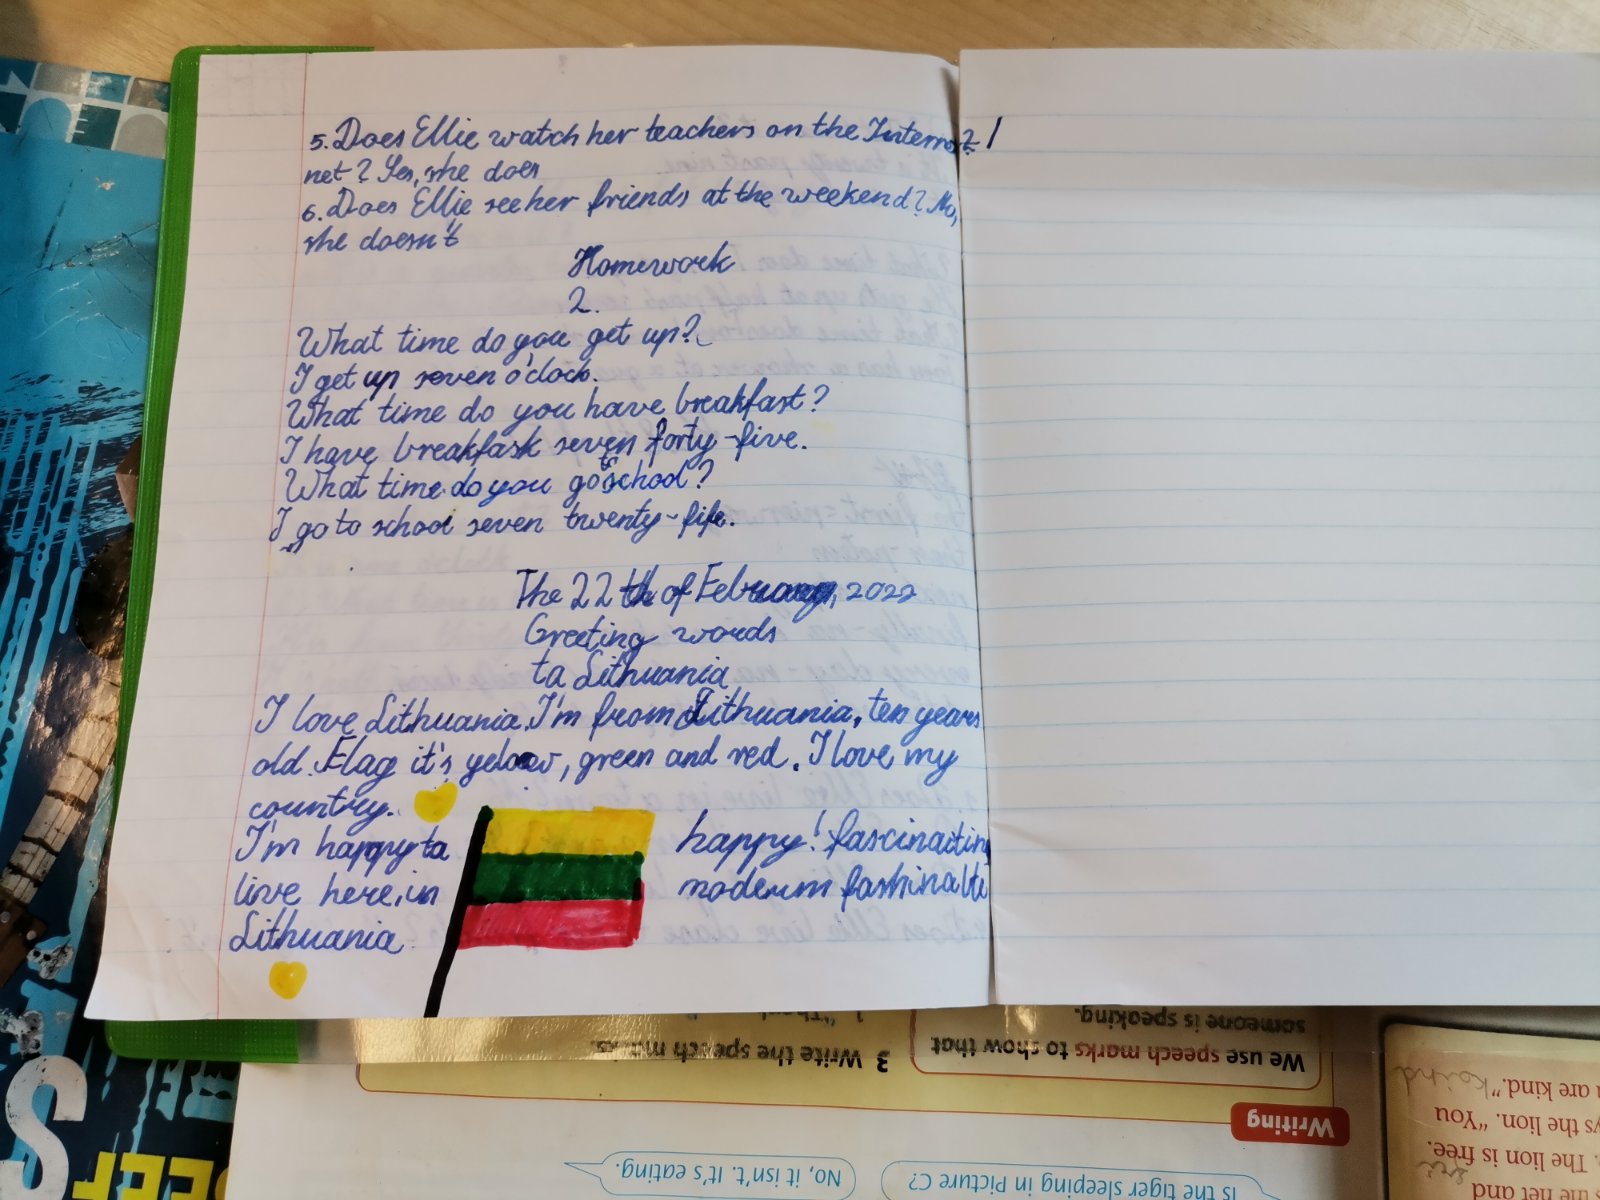 5. Does Ellie watch her teachers on the Internet?
net? Yes, she does
6. Does Ellie see her friends at the weekend? No,
she doesn't
Homework
2.
What time do you get up?
I get up seven o'clock.
What time do you have breakfast?
I have breakfask seven forty-five.
What time do you go to school?
I go to school seven twenty-fife.
The 22 th of February, 2022
Greeting words
ta Lithuania
I love Lithuania. I'm from Lithuania, ten years
old. Flag it's yelow, green and red. I love my
country.
I'm happy ta
live here, in
Lithuania
happy! fascinaiting
modernn fashinalti
3 Write the speech marks.
We use speech marks to show that
someone is speaking.
Writing
No, it isn't. It's eating.
Is the tiger sleeping in Picture C?
are kind."
the lion. "You
The lion is free.
the net and
S
BEEF